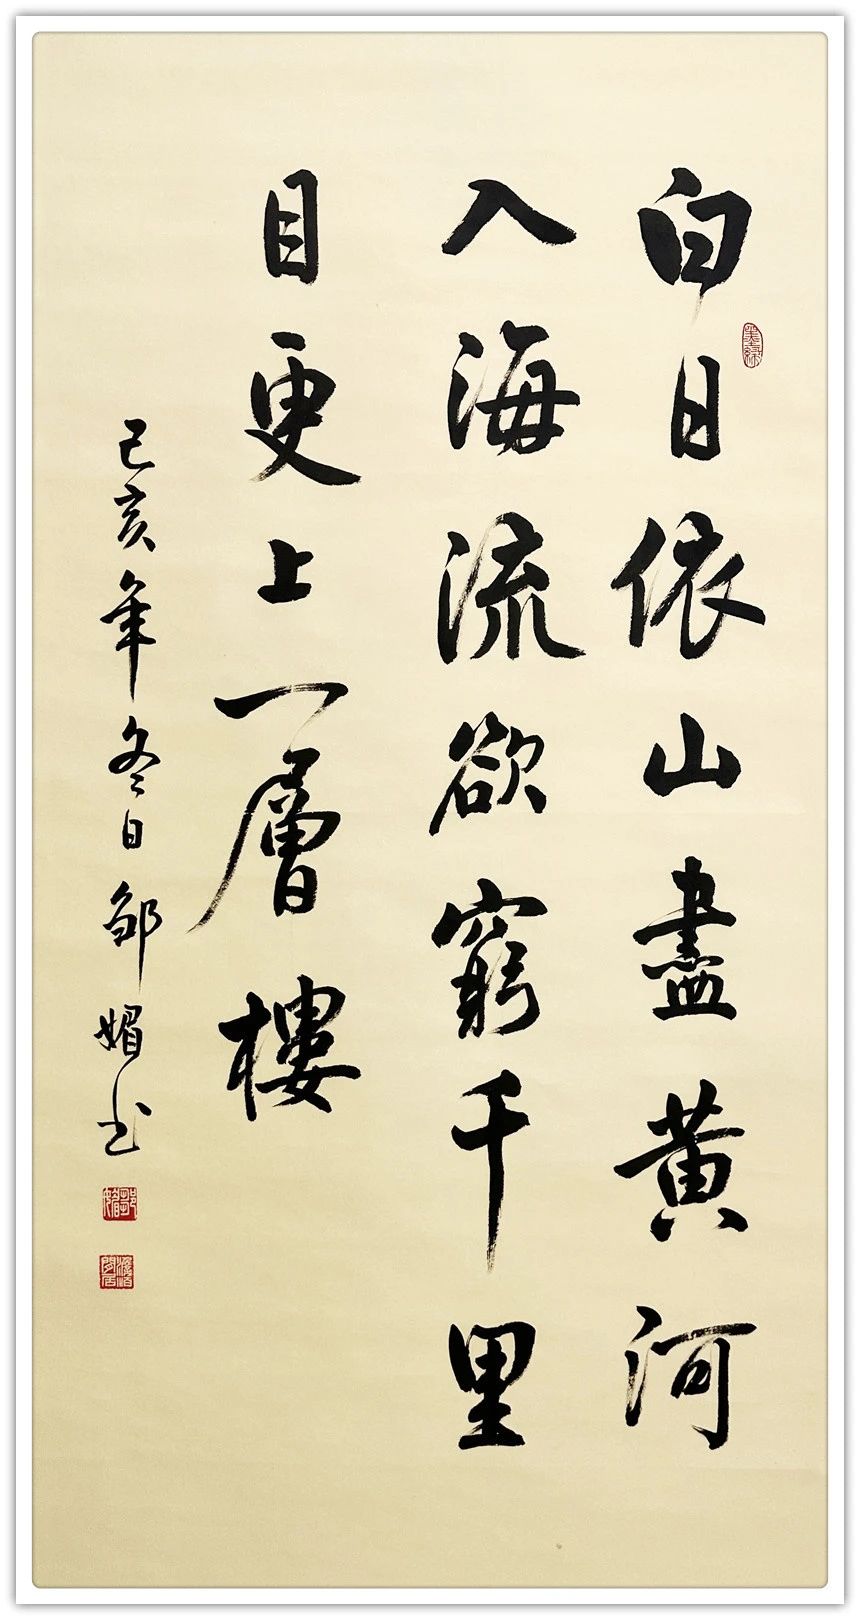 白日依山盡黄河
入海流欲窮千里
目更上一層樓
己亥年冬日邹媚书